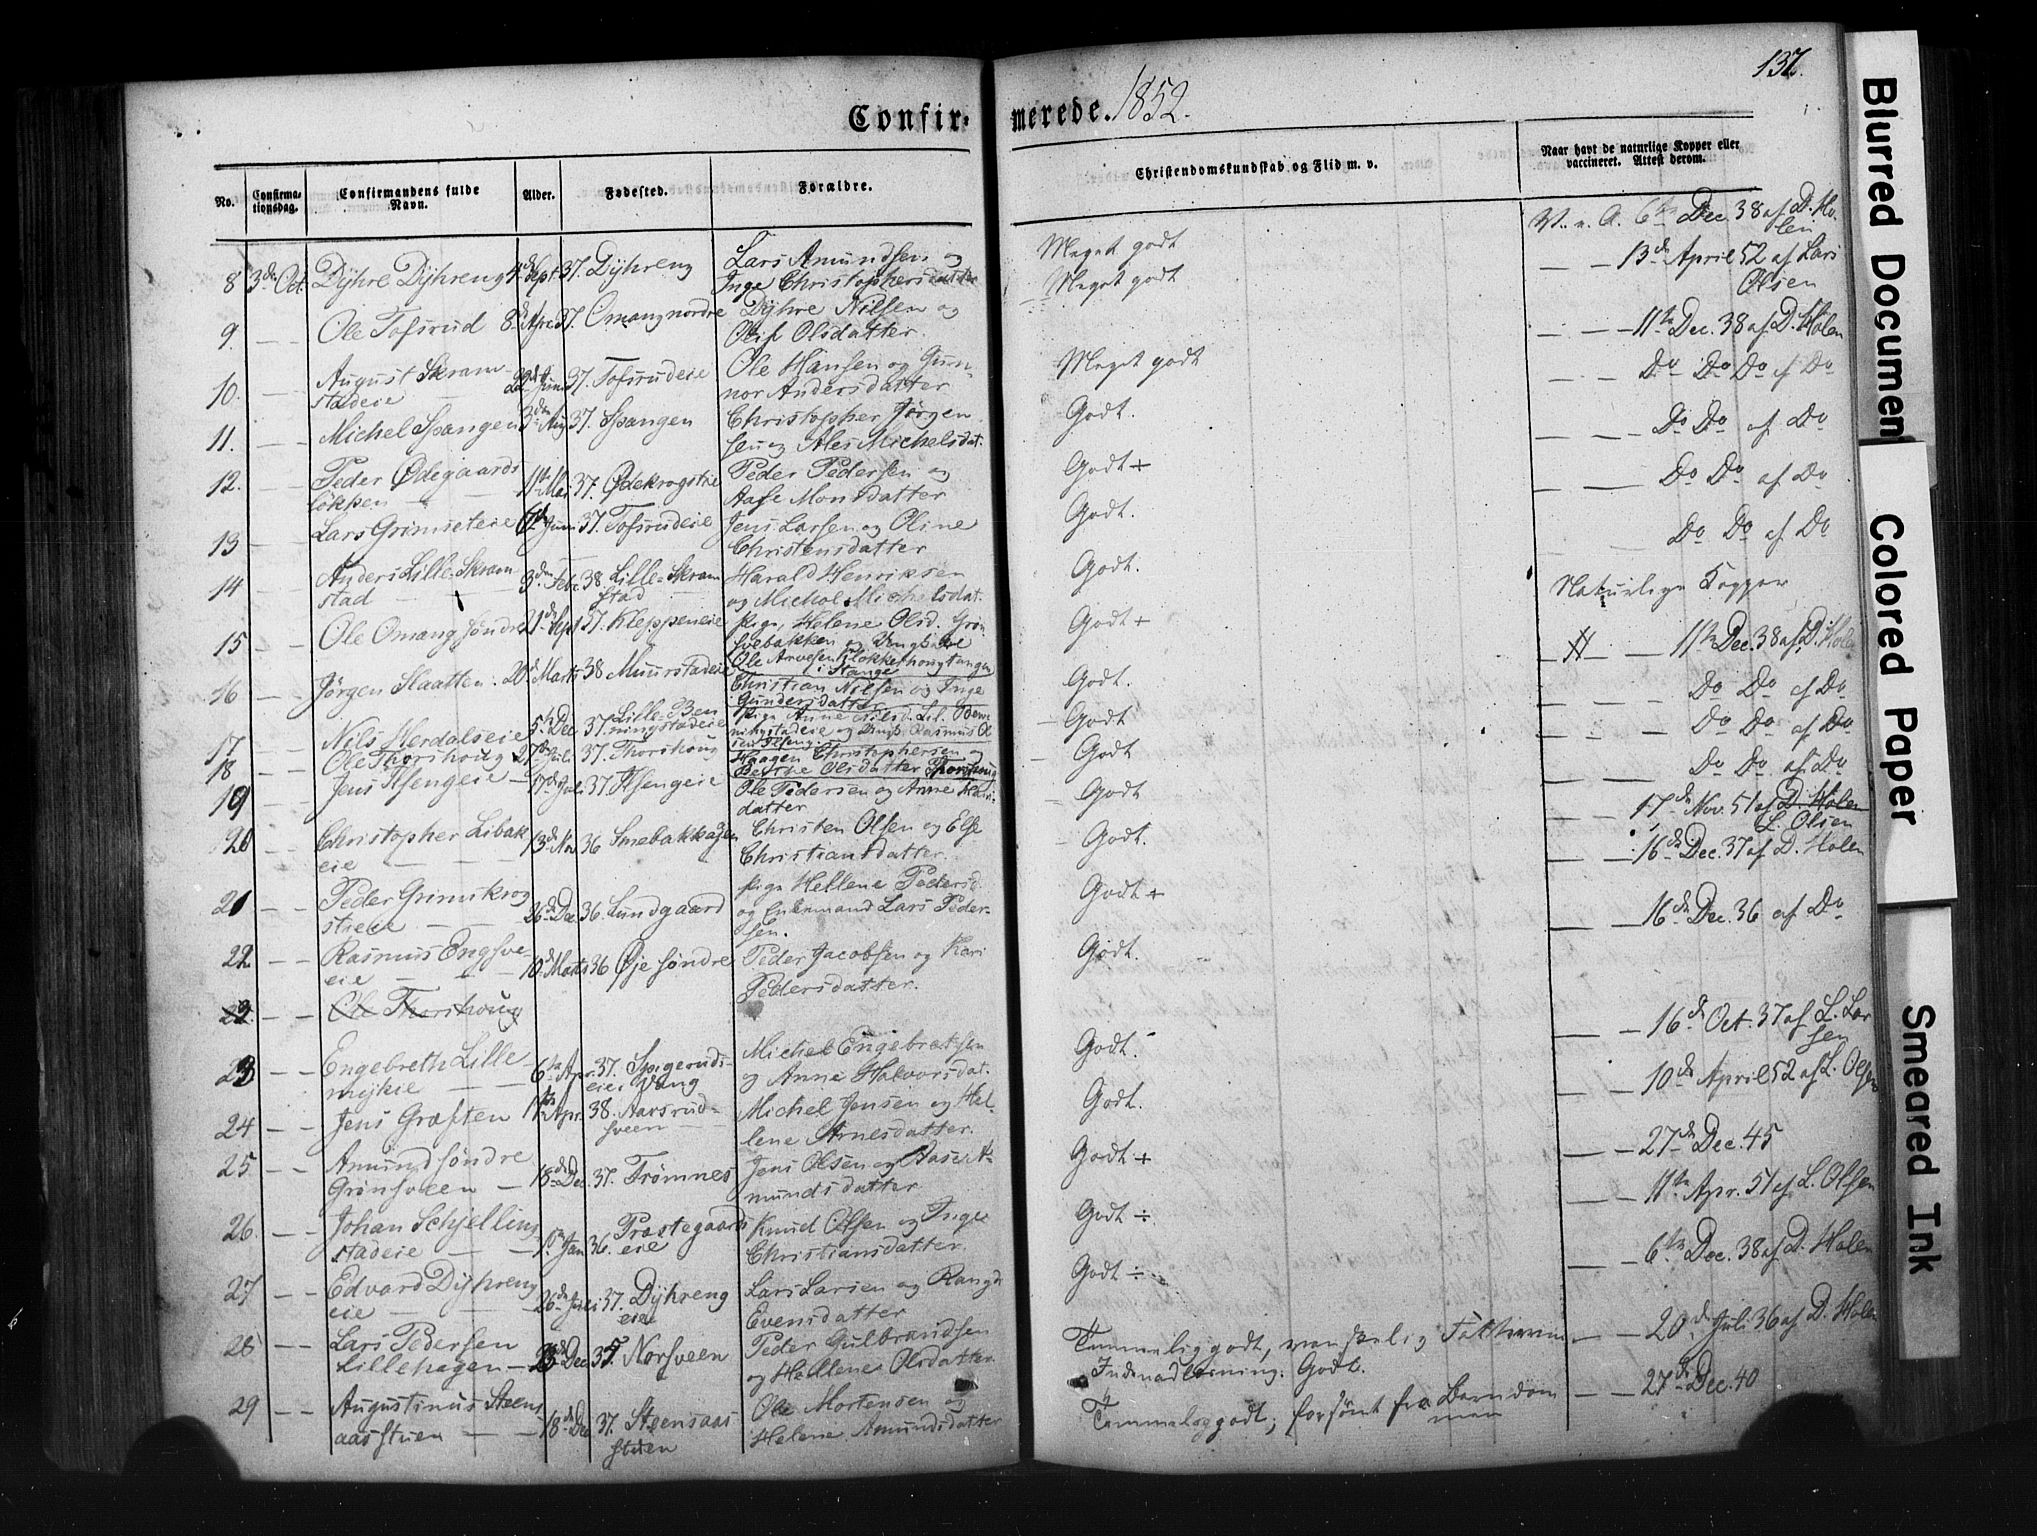 137.
Confirmerede. 1852.
No. Confirmationsdag. Confirmandens fulde Navn. Alder. Fødested. Forældre. Christendomskundskab og Flid m. v. Naar havt de naturlige Kopper eller vaccineret. Attest derom.
8 3de Oct. Dÿhre Dÿhreng 4de Sept 37. Dÿhreng Lars Amundsen og Meget godt V. v. A. 6te Dec. 38 af D. Holen
Inge Christophersdatter
9. — — Ole Tofsrud 8de Apr 37. Omang nordre Dÿhre Nilsen og Meget godt — — 13de April 52 af Lars Olsen
Olif Olsdatter.
10. — — August Skramstadeie 22de Juni 37. Tofsrudeie Ole Hansen og Gunnor Andersdatter Meget godt — — 11te Dec. 38 af D. Holen
11. — — Michel Spangen 3de Aug 37. Spangen Christopher Jørgensen og Ales Michelsdat. Godt. — — Do Do Do af Do
12. — — Peder Ødegaardsløkken 11te Mai 37. Ødekrogstie Peder Pedersen og Godt ÷ — — Do Do af Do
Aase Monsdatter
13 — — Lars Grimseteie 6te Juni 37. Tofsrudeie Jens Larsen og Oline Godt. — — Do Do af Do
Christensdatter
14 — — Anders Lille-Skramstad 3de Febr 38 Lille-Skramstad Harald Henriksen Godt. — — Do Do af Do
og Michol Michelsdat.
15 — — Ole Omang søndre 21de Sept 37. Kleppeneie Pige, Helene Olsd. Grønsvebakken og Ungkarl Godt + Naturlige Kopper
Ole Arvesen Klokkerhougtangen i Stange
16 — — Jørgen Slaatten. 20de Marts 38 Muurstadeie Christian Nilsen og Inge Godt. 11te Dec. 38 af D. Holen
Gundersdatter
17 — — Nils Merdalseie 5te Dec 37. Lille-Benningstadeie Pige Anne Nilsd. Lil. Benningstadeie og Ungk. Rasmus Godt — — Do Do af Do
18 — — Ole Thorshoug 27de Juli 37. Thorshoug Haagen Christophersen og Godt — — Do Do af Do
Berthe Olsdatter Thorshoug
19 — — Jens Ilsengeie — 17de Juli 37. Ilsengeie Ole Pedersen og Anne Godt — — Do Do af Do
datter
20 — — Christopher Libakeie 13de Nov 36 Smebakkagen Christen Olsen og Else Godt. — — 17de Nov. 51 af D. Holen L. Olsen
Christiansdatter.
21 — — Peder Grimskrogstieie 26de Dec. 36. Lundgaard Pige Hellene Pedersd. Godt + — — 16de Dec. 37 af D. Holen
og Enkemand Lars Pedersen.
22 — — Rasmus Engsveeie 10de Marts 36 Øje søndre Peder Jacobsen og Kari Godt. — — 16de Dec. 36 af Do
Pedersdatter.
23. — — Ole Thorshoug
23 — — Engebreth Lillemykie 6te Apr. 37. Spigerudseie i Vang Michel Engebretsen Godt. — — 16de Oct. 37 af L. Larsen
og Anne Halvorsdat.
24 — — Jens Græften 1ste Apr. 38. Aarsrudsveen Michel Jensen og Hellene Arnesdatter. Godt. — — 10de April 52 af L. Olsen
25 — — Amund søndre Grønsveen — 18de Dec. 37. Frømnes Jens Olsen og Aase Amundsdatter Godt + — — 27de Dec. 45
26. — — Johan Schjellingstadeie — 10de Jan 36. Præstegaardseie Knud Olsen og Inge Godt ÷ — — 11te Apr. 51 af L. Olsen
Christiansdatter.
27 — — Edvard Dÿhrengeie — 26de Juli 37. Dÿhrengeie Lars Larsen og Rangdi Godt ÷ — — 6te Dec. 38 af D. Holen
Evensdatter
28 — — Lars Pedersen Lillehagen — 23de Dec 35 Norsveen Peder Gulbrandsen Temmelig godt, vanskelig Fatteevne — — 20de Juli 36 af D. Holen
og Hellene Olsdatter Indenadlæsning. Godt.
29 — — Augustinus Steensaasstuen — — 18de Dec 37. Steensaasstuen Ole Mortensen og Temmelig godt; forsømt fra Barndommen — — 27de Dec. 40
Helene Amundsdatter
Blurred Document
Colored Paper
Smeared Ink